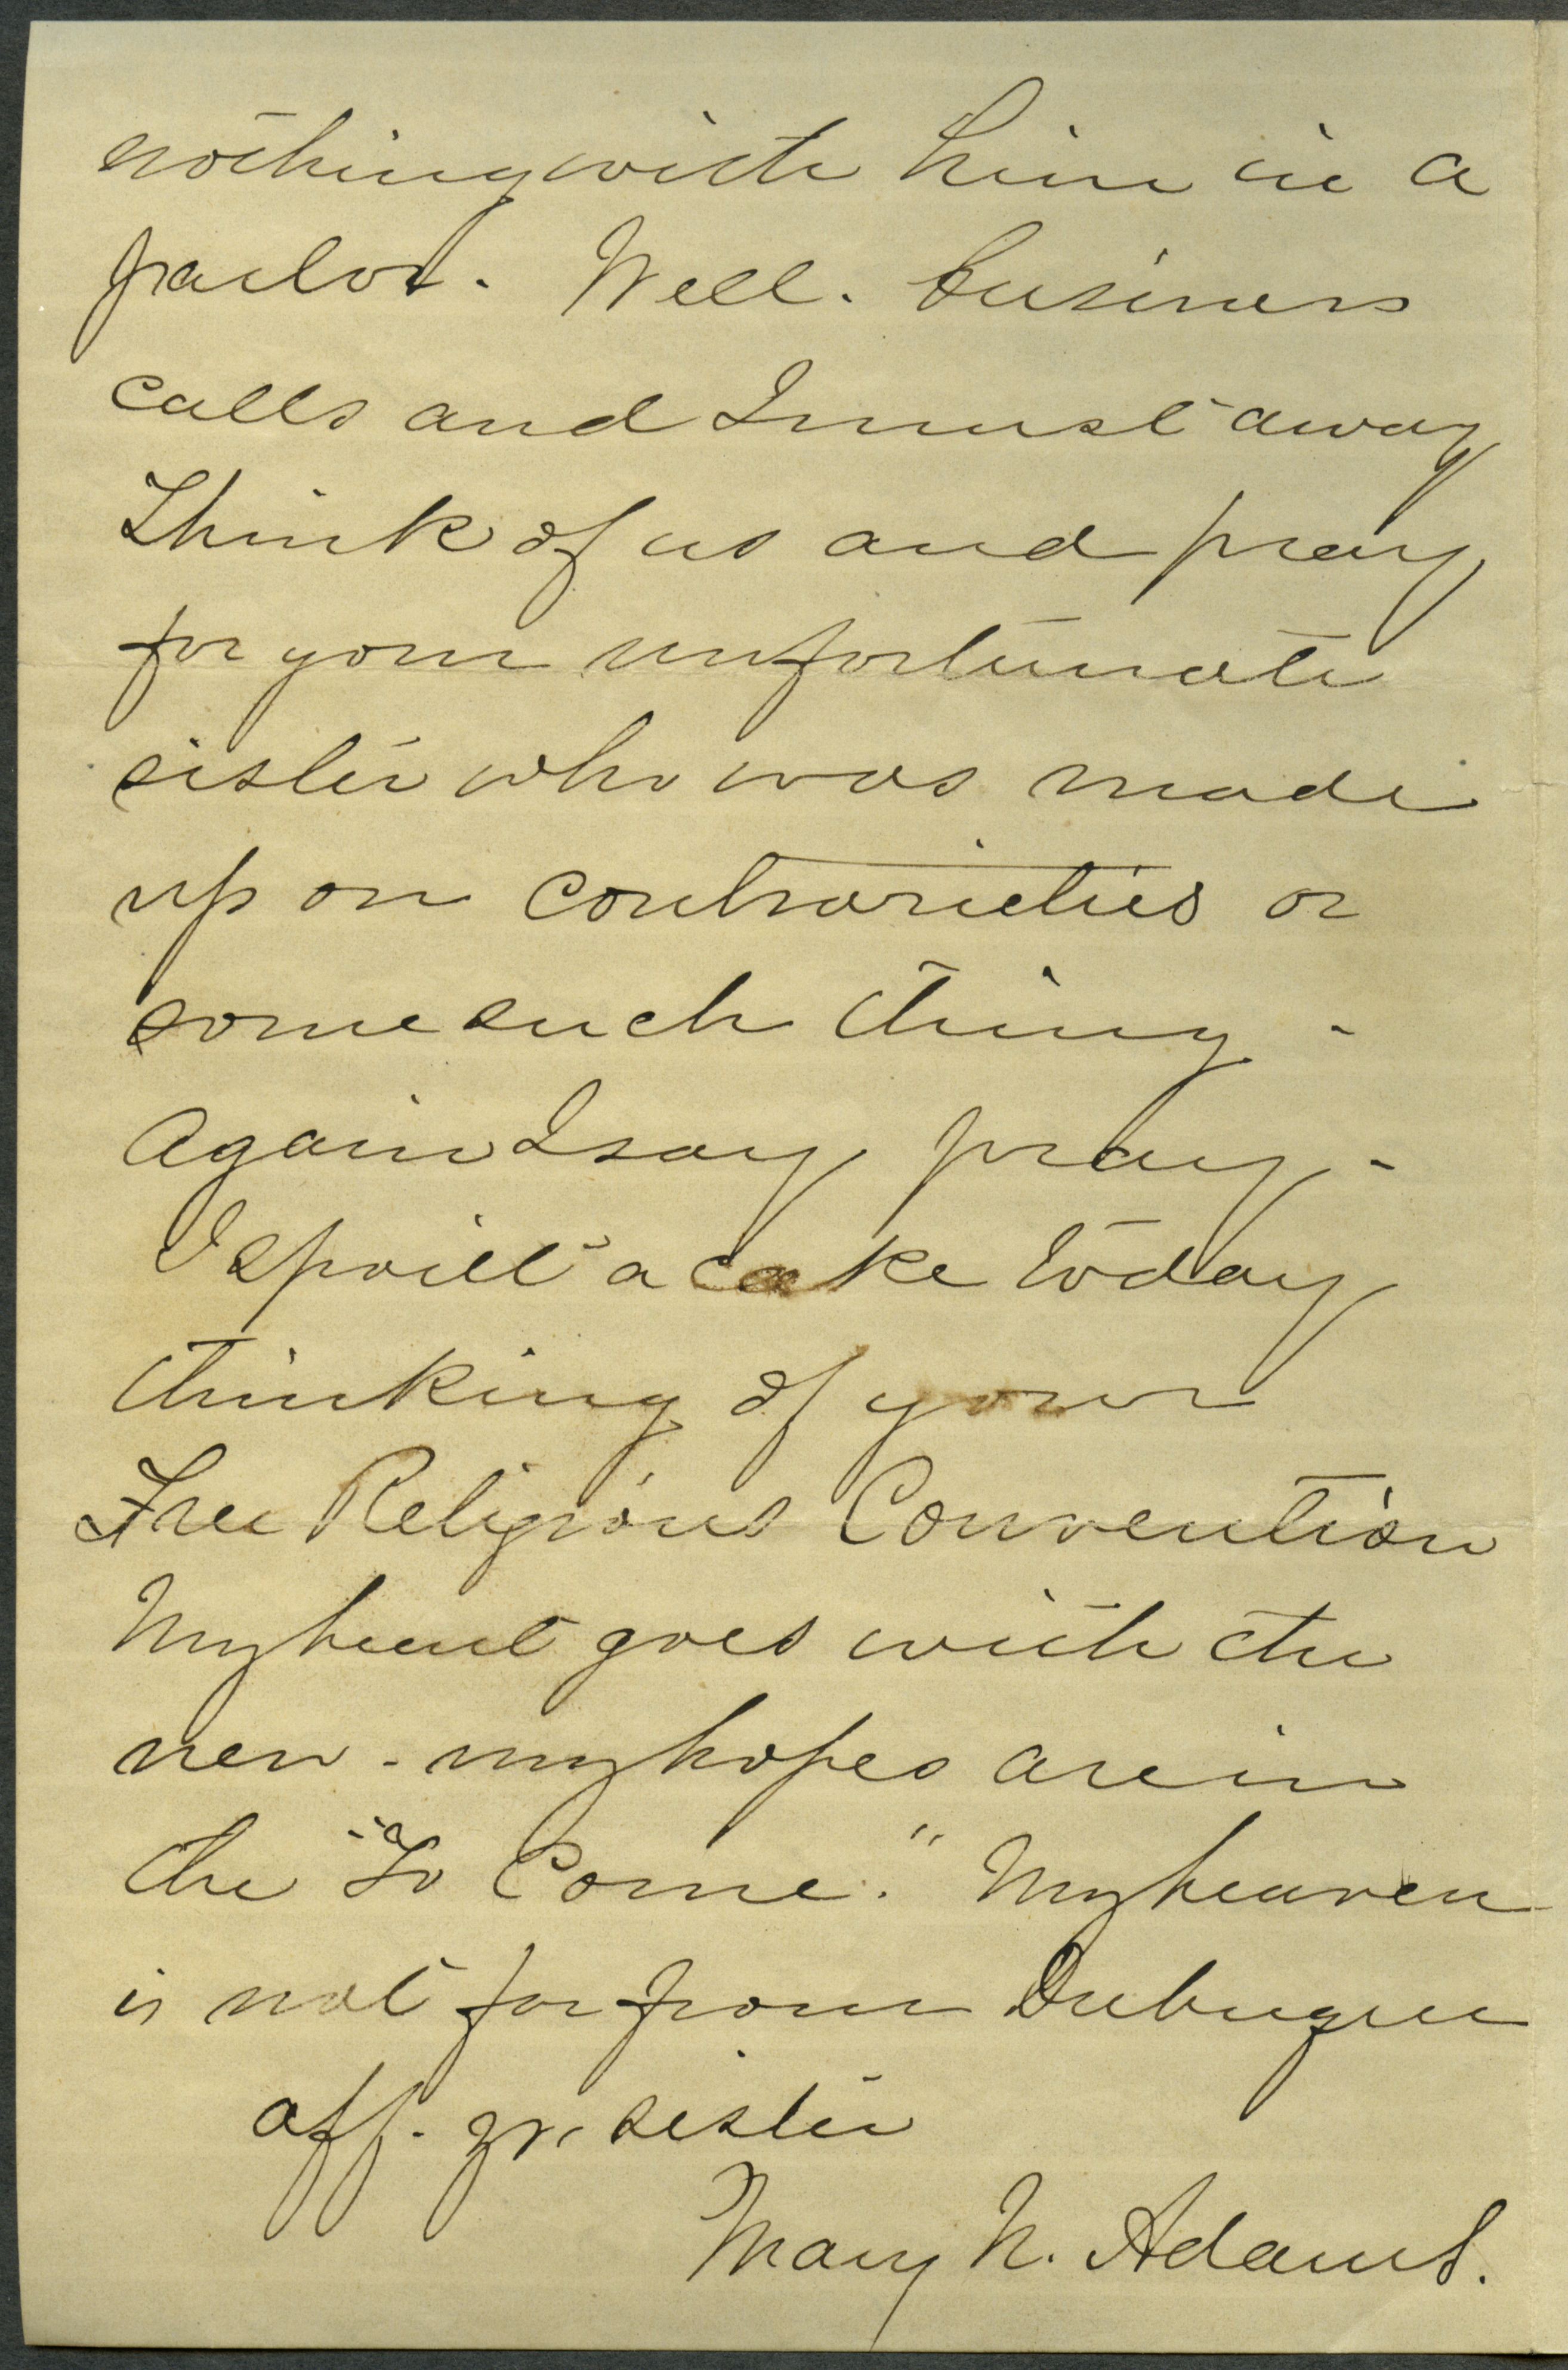 nothing with him in a
parlor. Well. business
calls and I must away
Think of us and pray
for your unfortunate
sister who was made
up on contrarieties or
some such thing -
Again I say pray -
I spoilt a cake today
thinking of your
Free Religious Convention
My heart goes with the
new - my hopes are in
the "To Come." My heaven
is not far from Dubuque
aff. yr. sister
Mary N. Adams.